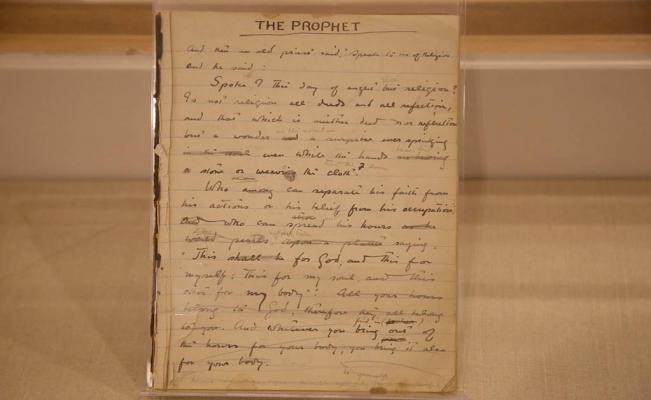 THE PROPHET
And then an old priest said, Speak to us of Religion
and he said:
Spoke I this day of aught but religion?
Is not religion all deeds and all reflection,
and that which is neither deed nor reflection
but a wonder and a surprise ever springing
in the soul even while the hands
a stone or weaving the cloth?
Who among can separate his faith from
his actions or his belief from his occupation
and who can spread his hours
upon a saying.
"This shall be for God, and this for
myself; This for my soul and this
for my body"? All your hours
belong to God, therefore they all belong
to you. And whatever you bring out of
the hours for your body, you bring it also
for your body.